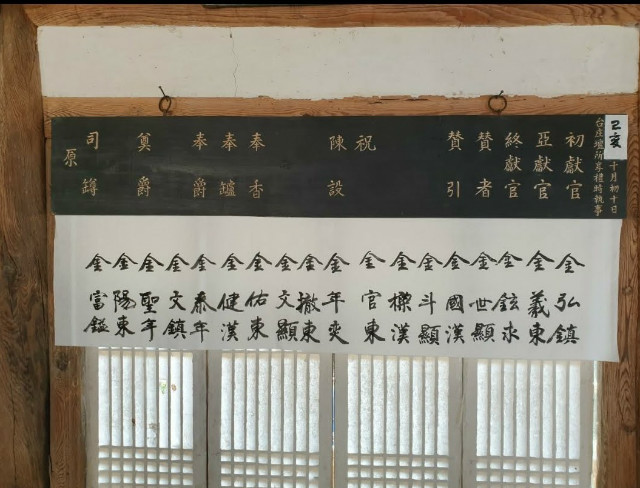 己亥 十月初十日
壇所享禮時執事
初獻官
亞獻官
終獻官
贊者
贊引
祝
陳設
奉香
奉爐
奉爵
奠爵
司罇
原
金弘鎮
金義東
金鉉永
金世顯
金國漢
金斗顯
金漢
金官東
金年
金撤東
金文顯
金佑東
金健漢
金泰年
金文鎮
金聖年
金陽東
金富鎰